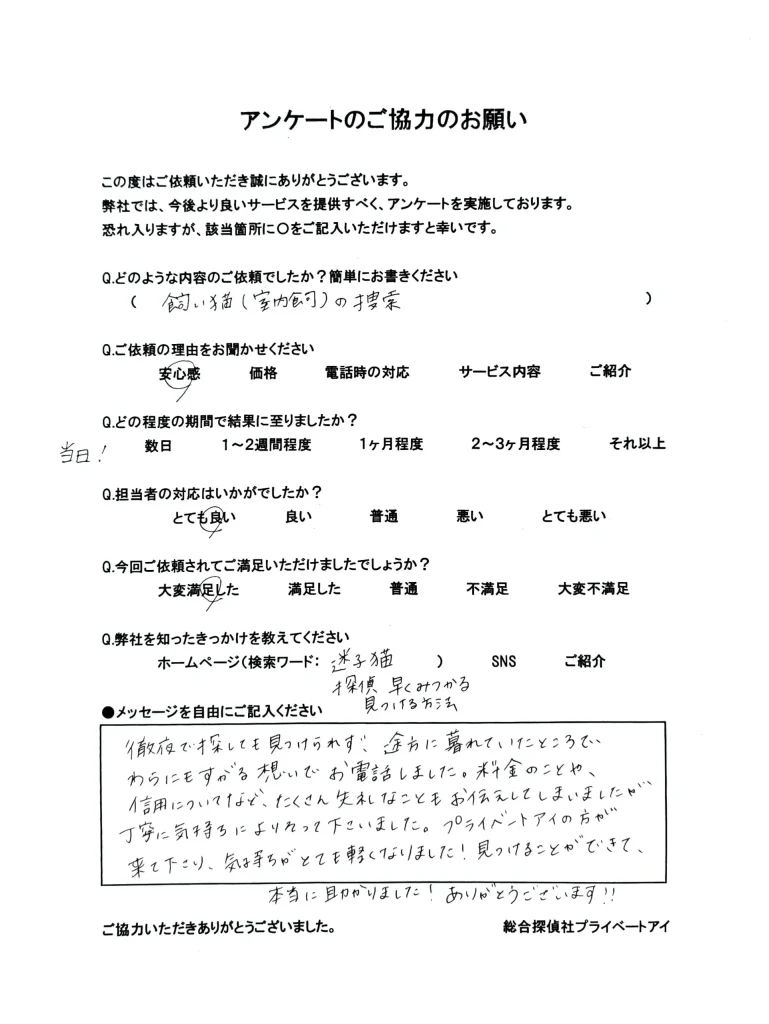 アンケートのご協力のお願い
この度はご依頼いただき誠にありがとうございます。
弊社では、今後より良いサービスを提供すべく、アンケートを実施しております。
恐れ入りますが、該当箇所に〇をご記入いただけますと幸いです。
Q.どのような内容のご依頼でしたか？簡単にお書きください
( 飼い猫(室内飼)の捜索 )
Q.ご依頼の理由をお聞かせください
安心感 価格 電話時の対応 サービス内容 ご紹介
Q.どの程度の期間で結果に至りましたか？
当日! 数日 1～2週間程度 1ヶ月程度 2～3ヶ月程度 それ以上
Q.担当者の対応はいかがでしたか？
とても良い 良い 普通 悪い とても悪い
Q.今回ご依頼されてご満足いただけましたでしょうか？
大変満足した 満足した 普通 不満足 大変不満足
Q.弊社を知ったきっかけを教えてください
ホームページ(検索ワード: 迷子猫 ) SNS ご紹介
探偵 早くみつかる
見つける方法
●メッセージを自由にご記入ください
徹夜で探しても見つけられず、途方に暮れていたところで、
わらにもすがる想いでお電話しました。料金のことや、
信用についてなど、たくさん失礼なこともお伝えしてしまいましたが
丁寧に気持ちによりそって下さいました。プライベートアイの方が
来て下さり、気持ちがとても軽くなりました！見つけることができて、
本当に助かりました！ありがとうございます!!
ご協力いただきありがとうございました。 総合探偵社プライベートアイ